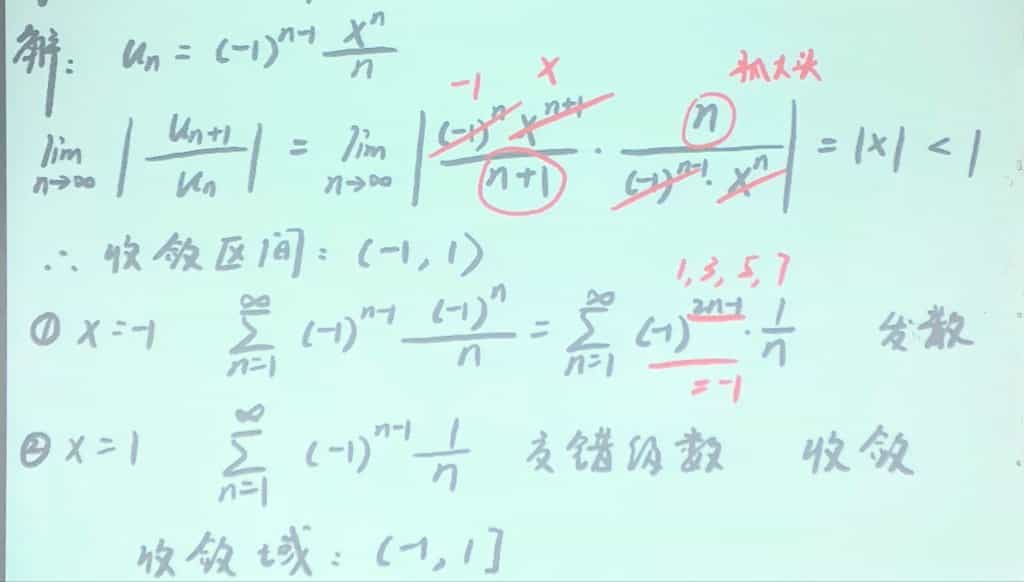 解: u_n = (-1)^{n-1} \frac{x^n}{n}
-1 x 抓大头
\lim_{n→∞} |\frac{u_{n+1}}{u_n}| = \lim_{n→∞} |\frac{(-1)^n x^{n+1}}{n+1} · \frac{n}{(-1)^{n-1} · x^n}| = |x| < 1
∴ 收敛区间: (-1, 1)
1, 3, 5, 7
① x = -1 \sum_{n=1}^{∞} (-1)^{n-1} \frac{(-1)^n}{n} = \sum_{n=1}^{∞} (-1)^{2n-1} · \frac{1}{n} 发散
= -1
② x = 1 \sum_{n=1}^{∞} (-1)^{n-1} \frac{1}{n} 交错级数 收敛
收敛域: (-1, 1]